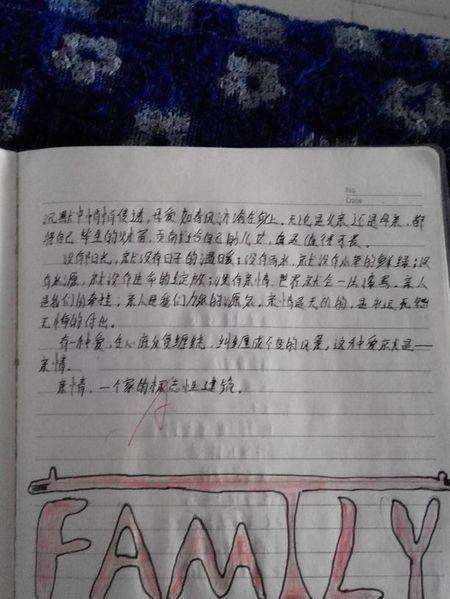 No.
Date
沉默中悄悄侵透,母爱如春风沐浴在身上。无论是父亲还是母亲,都
将自己毕生的财富,贡献给自己的儿女,真是值得可畏。
没有阳光,就没有日子的温暖;没有雨水,就没有小草的鲜绿;没
有水源,就没有生命的绽放;没有亲情,世界就会一片凄寒。亲人
是我们的牵挂,亲人是我们力量的源泉,亲情是无价的,是永远无怨
无悔的付出。
有一种爱,在心底反复缠绕,纠缠成不变的风景,这种爱就是——
亲情。
亲情,一个家的标志性建筑。
FAMILY